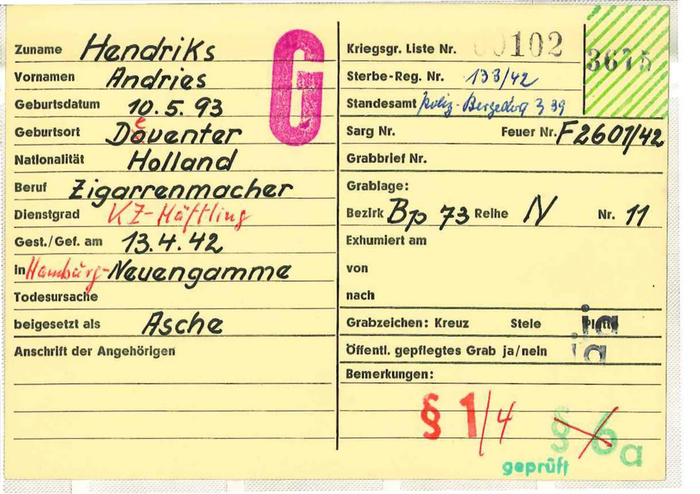 Zuname Hendriks
Vornamen Andries
Geburtsdatum 10.5.93
Geburtsort Deventer
Nationalität Holland
Beruf Zigarrenmacher
Dienstgrad KZ-Häftling
Gest./Gef. am 13.4.42
in Hamburg-Neuengamme
Todesursache
beigesetzt als Asche
Anschrift der Angehörigen
G
Kriegsgr. Liste Nr. 102
3675
Sterbe-Reg. Nr. 133/42
Standesamt Bergedorf 3 99
Sarg Nr. Feuer Nr. F2601/42
Grabbrief Nr.
Grablage:
Bezirk Bp 73 Reihe N Nr. 11
Exhumiert am
von
nach
Grabzeichen: Kreuz Stele ja
Öffentl. gepflegtes Grab ja/nein ja
Bemerkungen:
§ 1/4 § 6a
geprüft